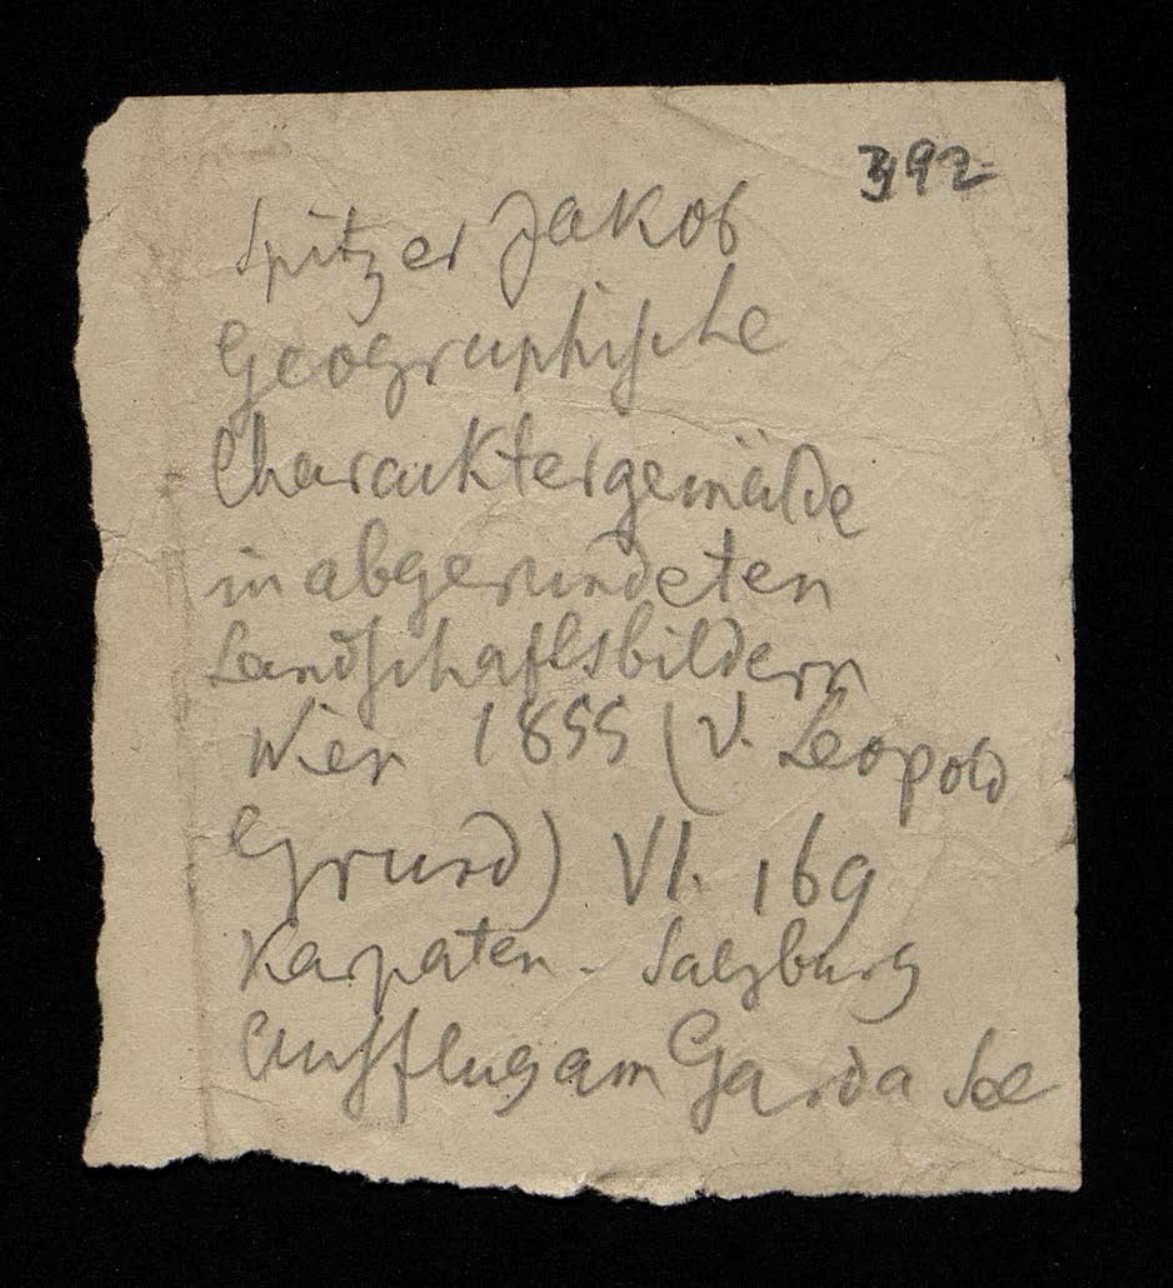 392
Spitzer Jakob
Geographische
Charaktergemälde
in abgerundeten
Landschaftsbildern
Wien 1855 (V. Leopold
Grund) VI. 169
Karpaten - Salzburg
Ausfflug am Garda See